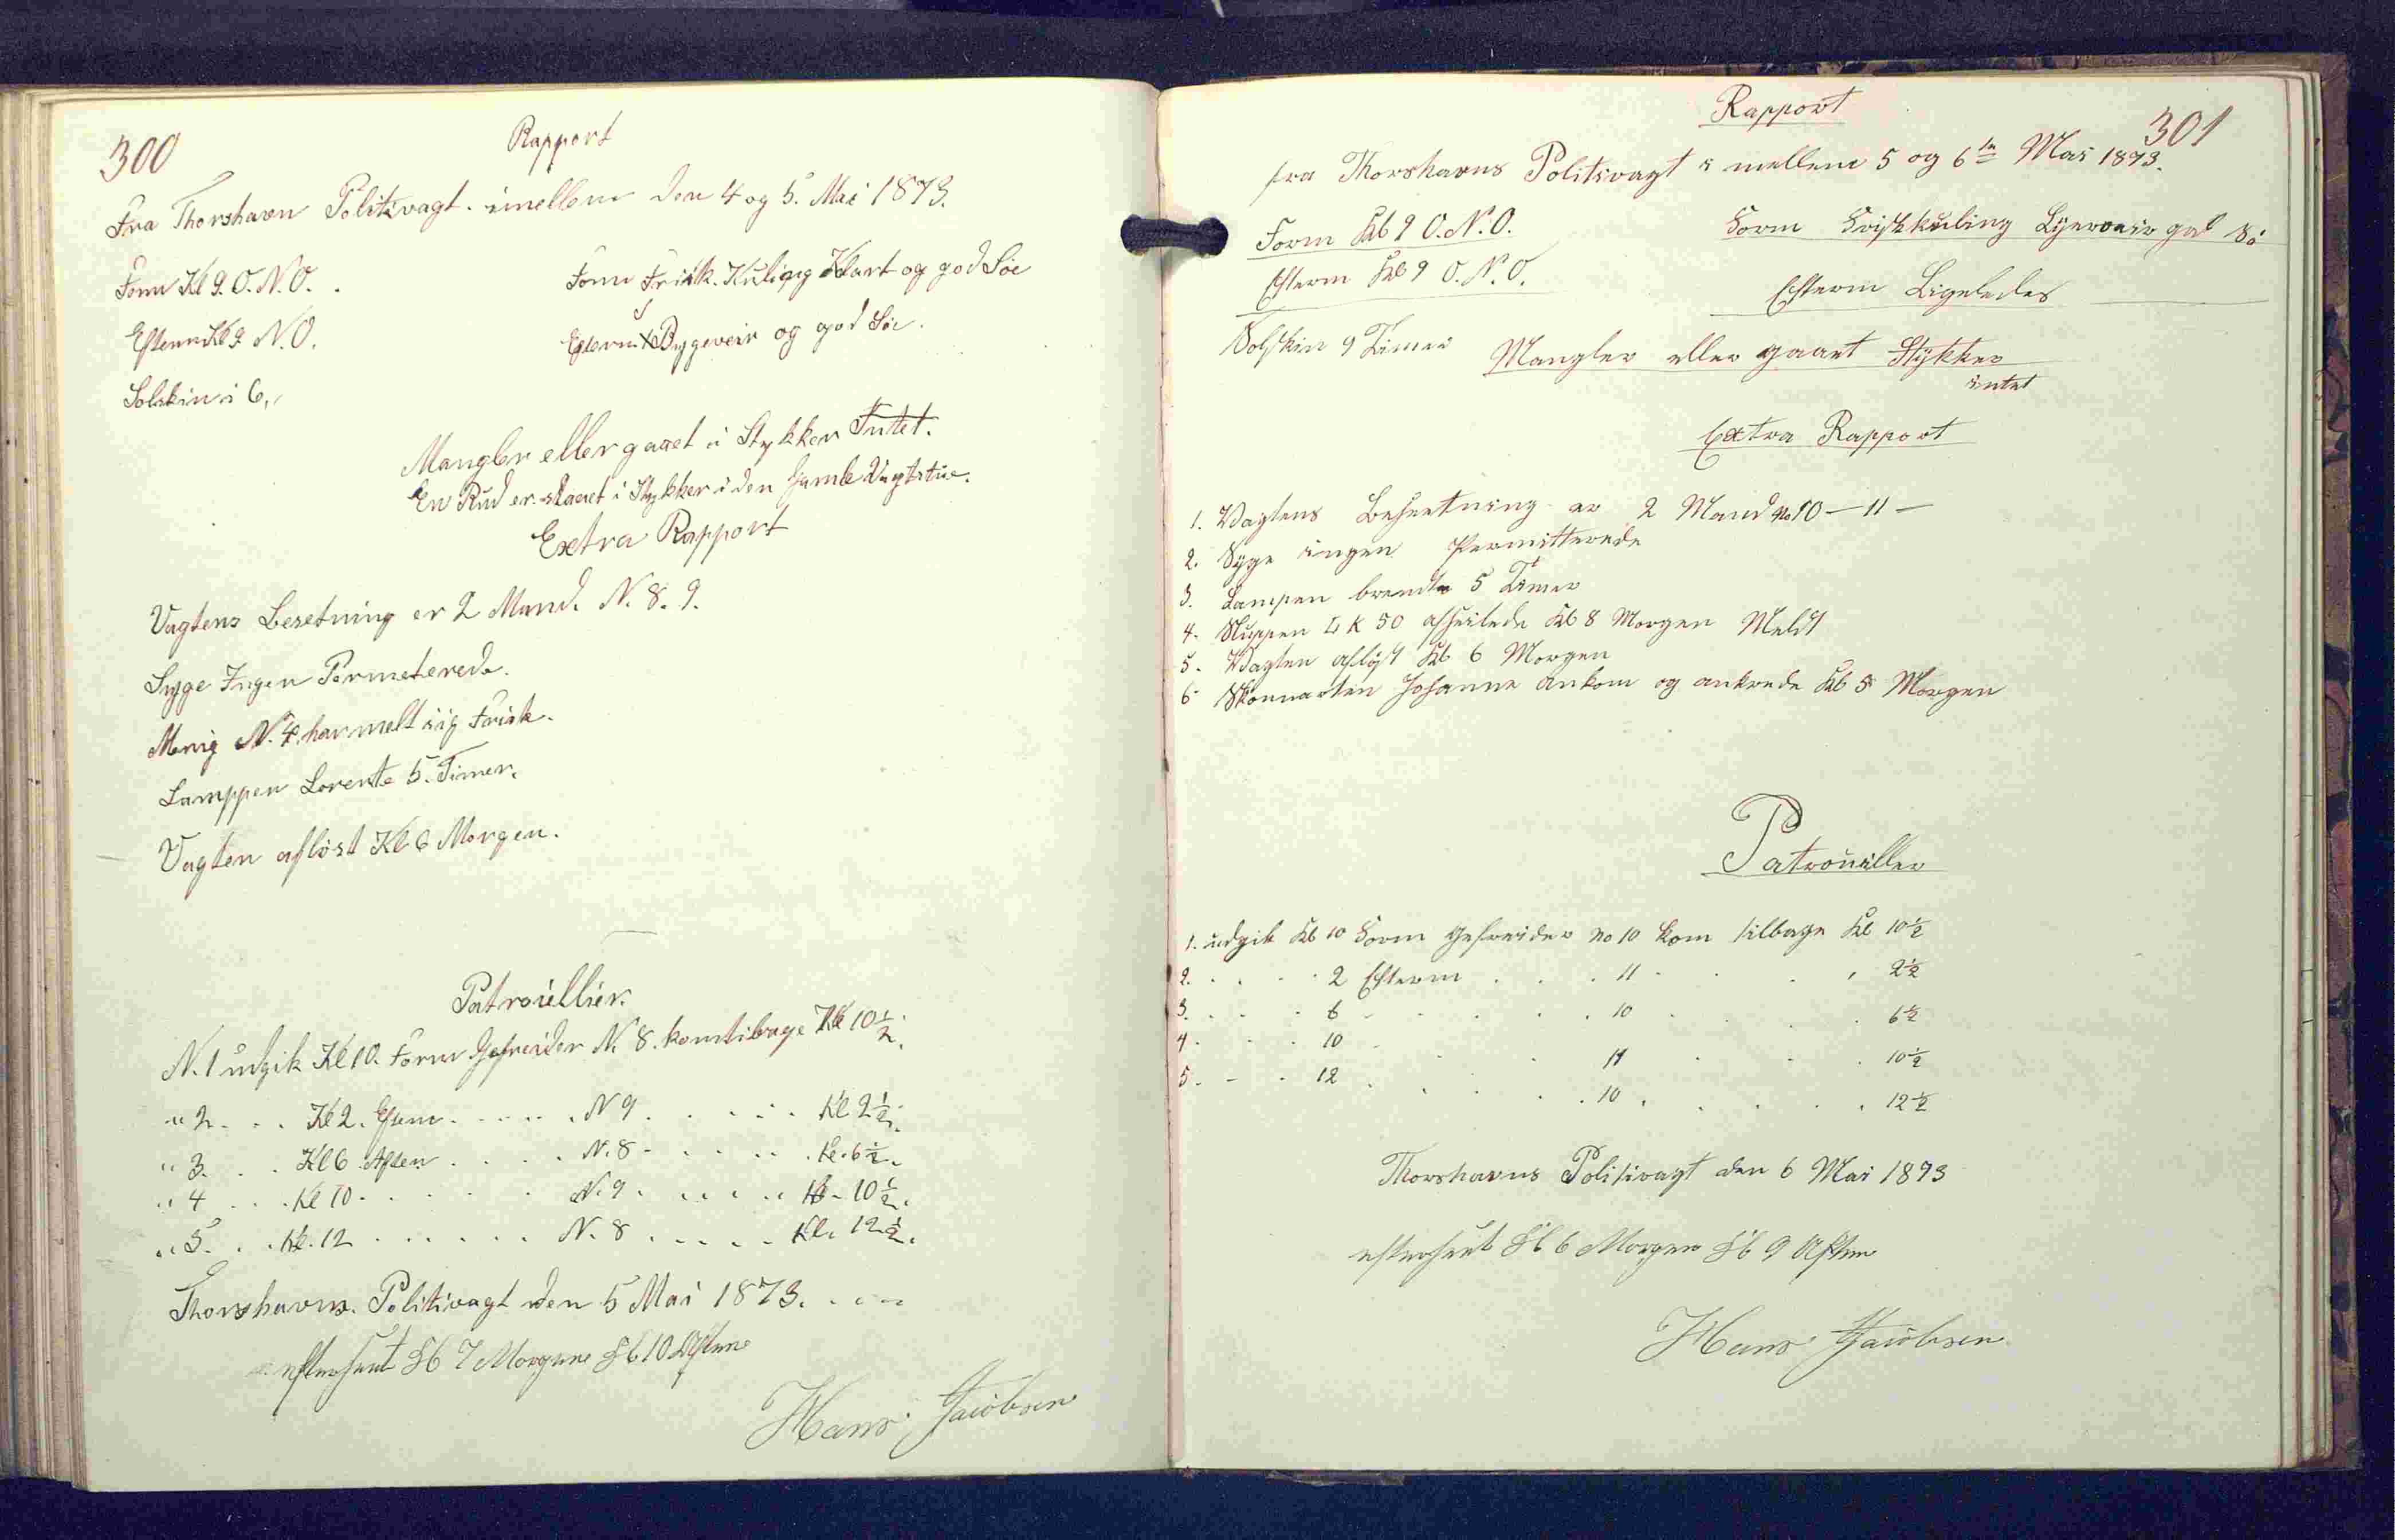 300
Rapport
Fra Thorshavn Politivagt. imellem den 4 og 5. Mai 1873.
Form Kl 9. O. N. O. .
Form Frisk. Kuling Klart og god Söe
Efterm Kl 9. N. O.
Efterm Bygeveir og god Söe.
Solskin i 6,,
Mangler eller gaaet i Stykker Intet.
En Rud er slaaet i Stykker i den Gamle Vagtstue.
Extra Rapport
Vagtens Besetning er 2 Mand. N. 8. 9.
Syge Ingen Permeterede.
Menig N. 4. har melt sig Frisk.
Lamppen brente 5. Timer.
Vagten aflöst Kl 6 Morgen.
Patrouillier.
N. 1 udgik Kl 10. Form Gefreider N. 8. kom tilbage Kl 10½.
" 2 . . . Kl 2. Efterm . . . . . N 9 . . . . . Kl 2½.
" 3. . . Kl 6 Aften . . . . N. 8 . . . . . Kl. 6½.
" 4 . . . Kl 10 . . . . . N. 9 . . . . . Kl. 10½.
" 5. . . Kl. 12 . . . . . . N. 8 . . . . . Kl. 12½.
Thorshavns. Politivagt den 5 Mai 1873. . . .
efterseet Kl 7 Morgen Kl 10 Aften
Hans Jacobsen
301
Rapport
fra Thorshavns Politivagt i mellem 5 og 6te Mai 1873.
Form Kl 9 O. N. O.
Form Friskkuling Bjerveir god Sö
Efterm Kl 9 O. N. O.
Efterm Ligeledes
Solskin 9 Timer
Mangler eller gaaet Stykker
intet
Extra Rapport
1. Vagtens Besætning er 2 Mand No 10 — 11 —
2. Syge ingen Permitterede
3. Lampen brendte 5 Timer
4. Sluppen LK 50 afseilede Kl 8 Morgen Meldt
5. Vagten aflöst Kl 6 Morgen
6 Skonnarten Johanne ankom og ankrede Kl 5 Morgen
Patrouiller
1. udgik Kl 10 Form Gefreider No 10 kom tilbage Kl 10½
2. . . . 2 Efterm . . . 11 . . . 2½
3. . . . 6 . . . . 10 . . . 6½
4. . . 10 . . . 11 . . . 10½
5. . . 12 . . . . 10 . . . . 12½
Thorshavns Politivagt den 6 Mai 1873
efterseet Kl 6 Morgen Kl 9 Aften
Hans Jacobsen